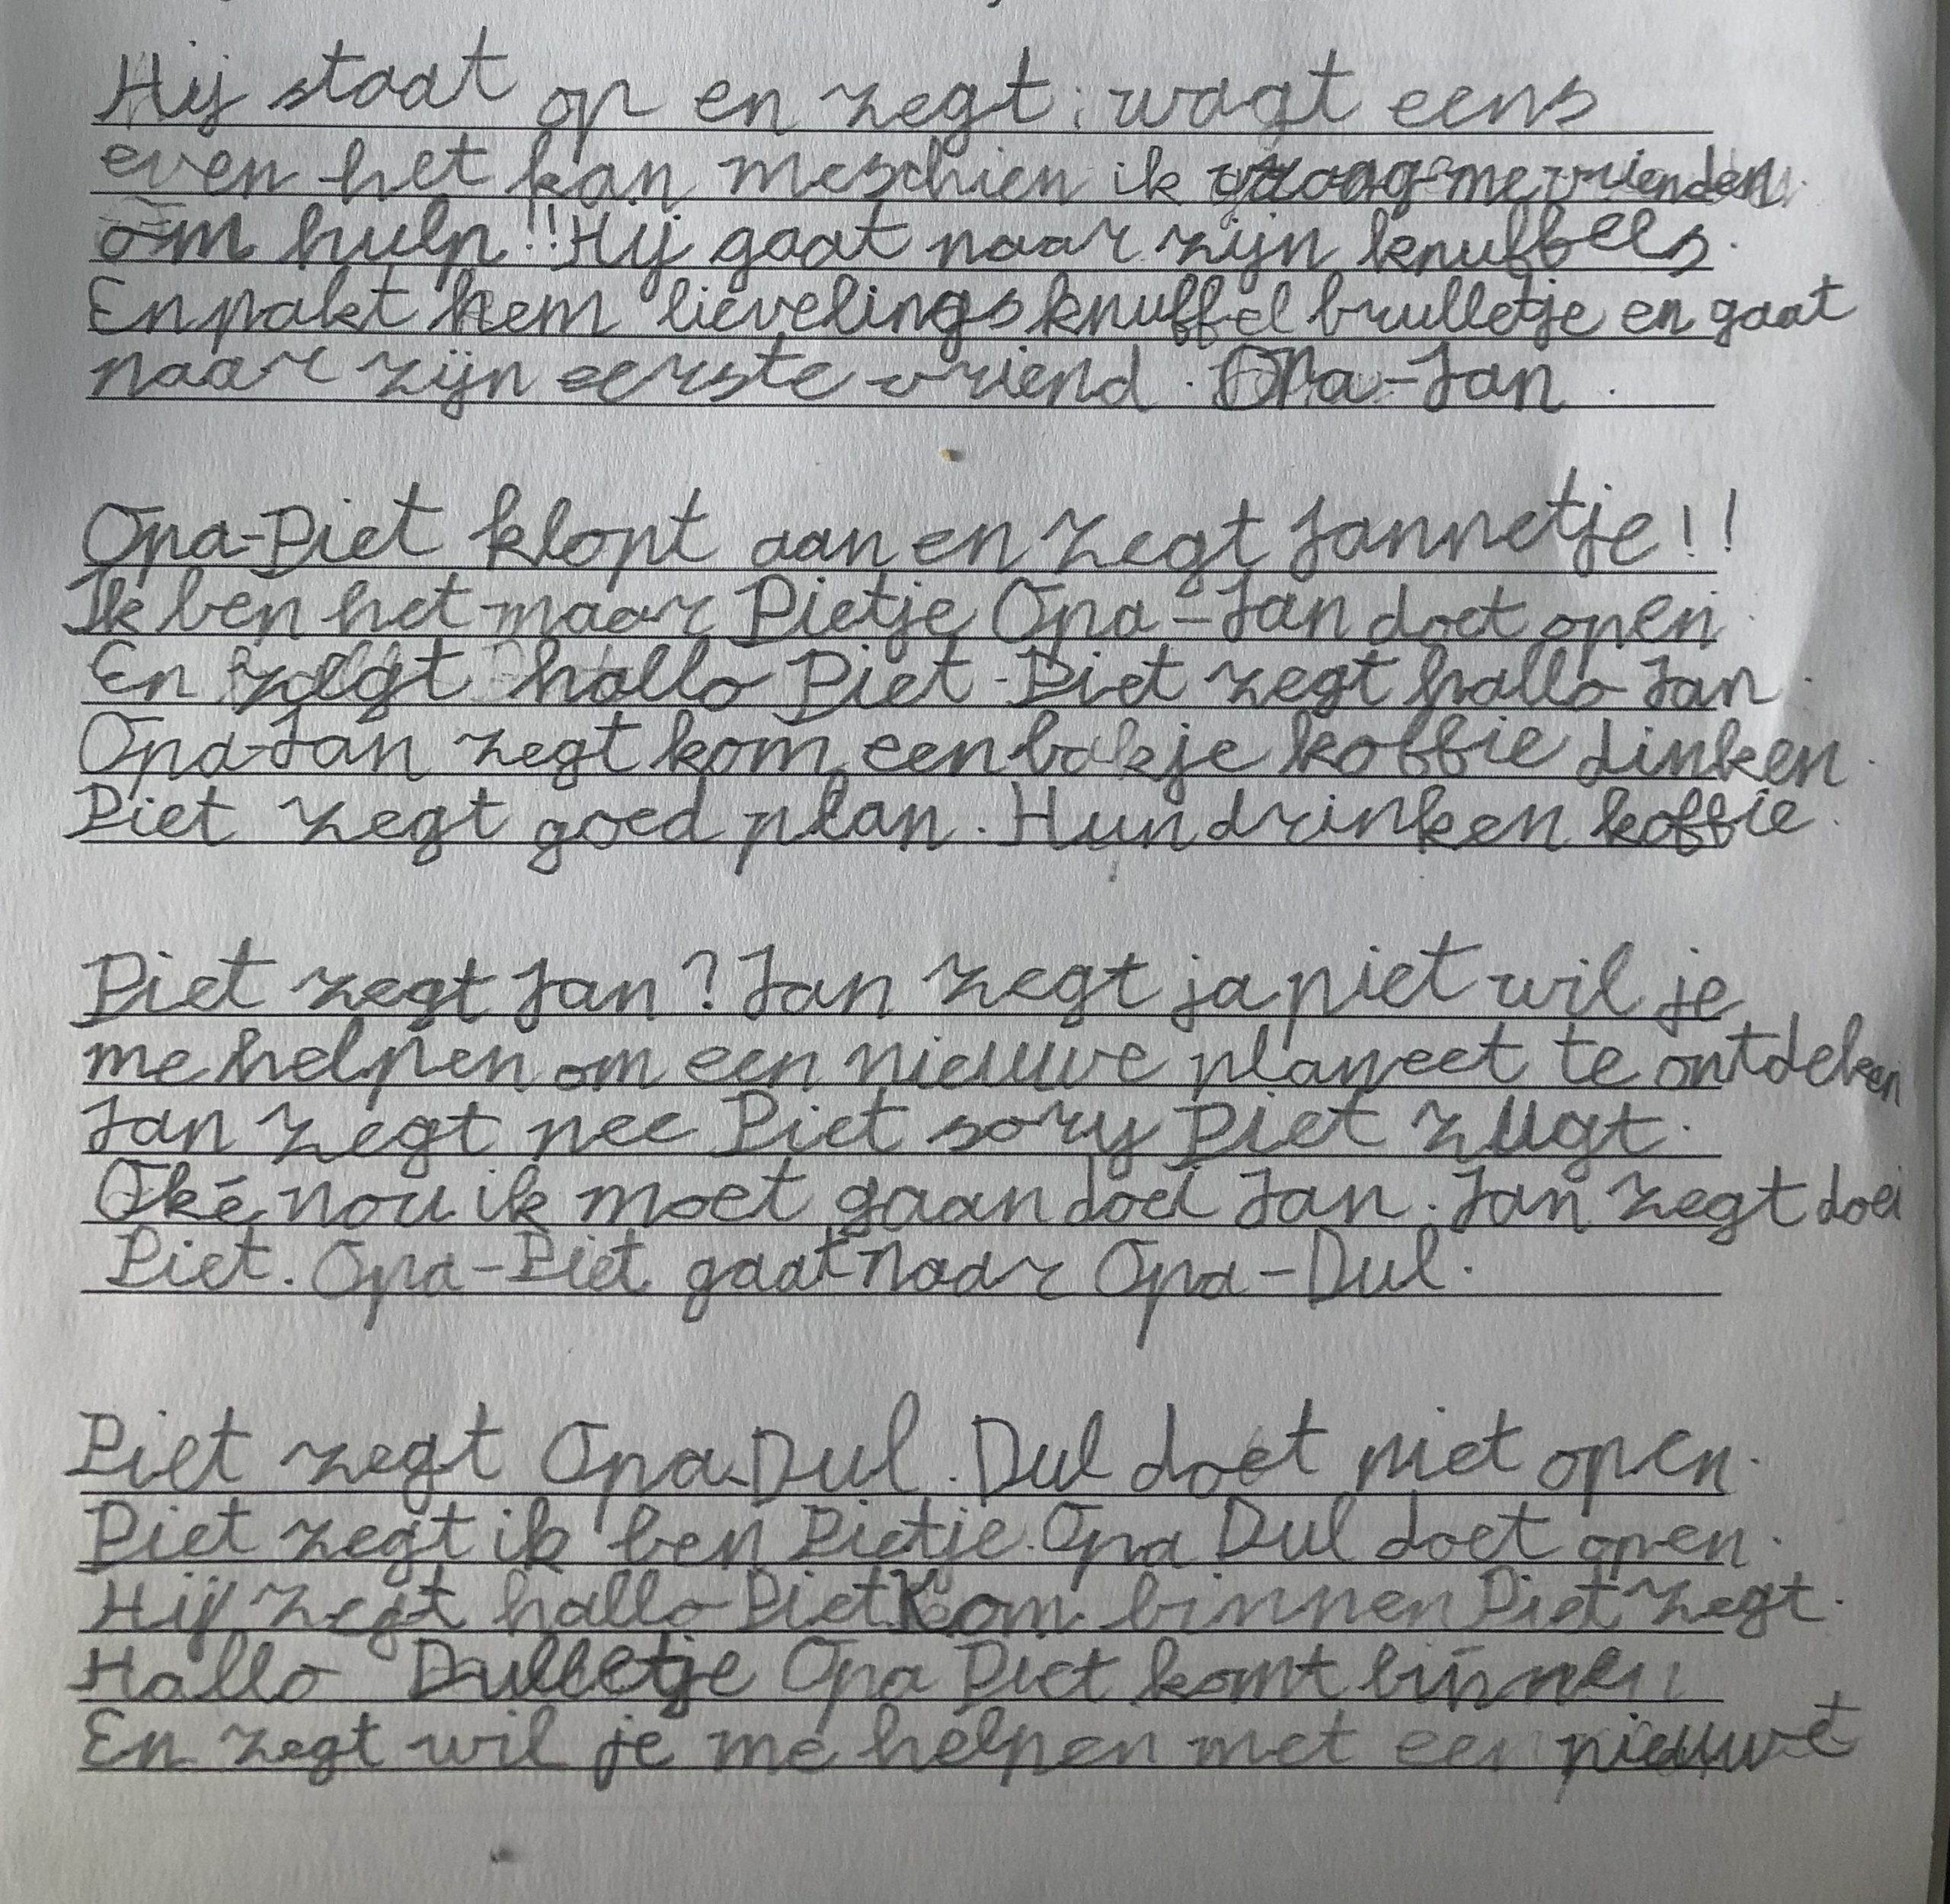 Hij staat op en zegt: wagt eens
even het kan meschien ik vraag me vrienden.
om hulp!! Hij gaat naar zijn knuffels.
En pakt hem lievelingsknuffel brulletje en gaat
naar zijn eerste vriend. Opa-Jan.
Opa-Piet klopt aan en zegt Jannetje!!
Ik ben het maar Pietje Opa-Jan doet open.
En zegt hallo Piet. Piet zegt hallo Jan.
Opa-Jan zegt kom een bakje koffie dinken.
Piet zegt goed plan. Hun drinken koffie.
Piet zegt Jan? Jan zegt ja piet wil je
me helpen om een nieuwe planeet te ontdeken
Jan zegt nee Piet sory Piet zegt.
Oké nou ik moet gaan doei Jan. Jan zegt doei
Piet. Opa-Piet gaat naar Opa-Dul.
Piet zegt Opa-Dul. Dul doet niet open.
Piet zegt ik ben Pietje. Opa Dul doet open.
Hij zegt hallo Piet Kom binnen Piet zegt.
Hallo Dulletje Opa Piet komt binnen
En zegt wil je me helpen met een nieuwe